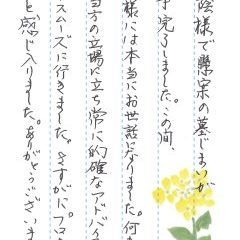 陰様で懸案の墓じまいが
了完了しました。この間、
様には本当にお世話になりました。何か
当方の立場に立ち常に的確なアドバイ
スムーズに行きました。さすがにプロ
と感じ入りました。ありがとうございま